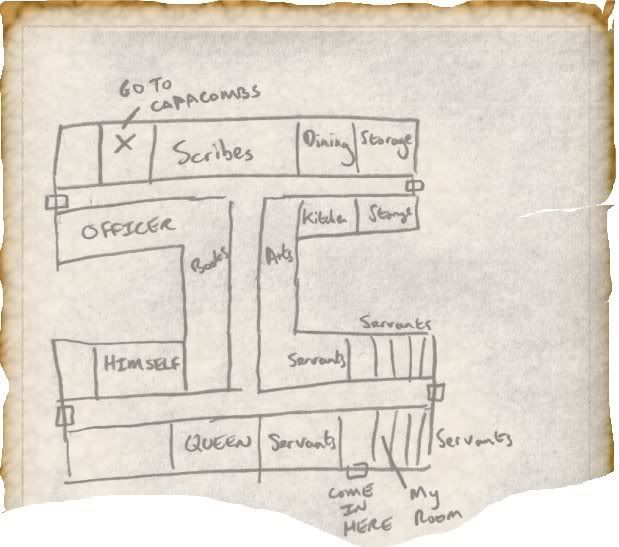 GO TO
CAPACOMBS
X
Scribes
Dining
Storage
OFFICER
Kitchen
Storage
Books
Arts
Servants
HIMSELF
Servants
QUEEN
Servants
Servants
COME
IN
HERE
My
ROOM